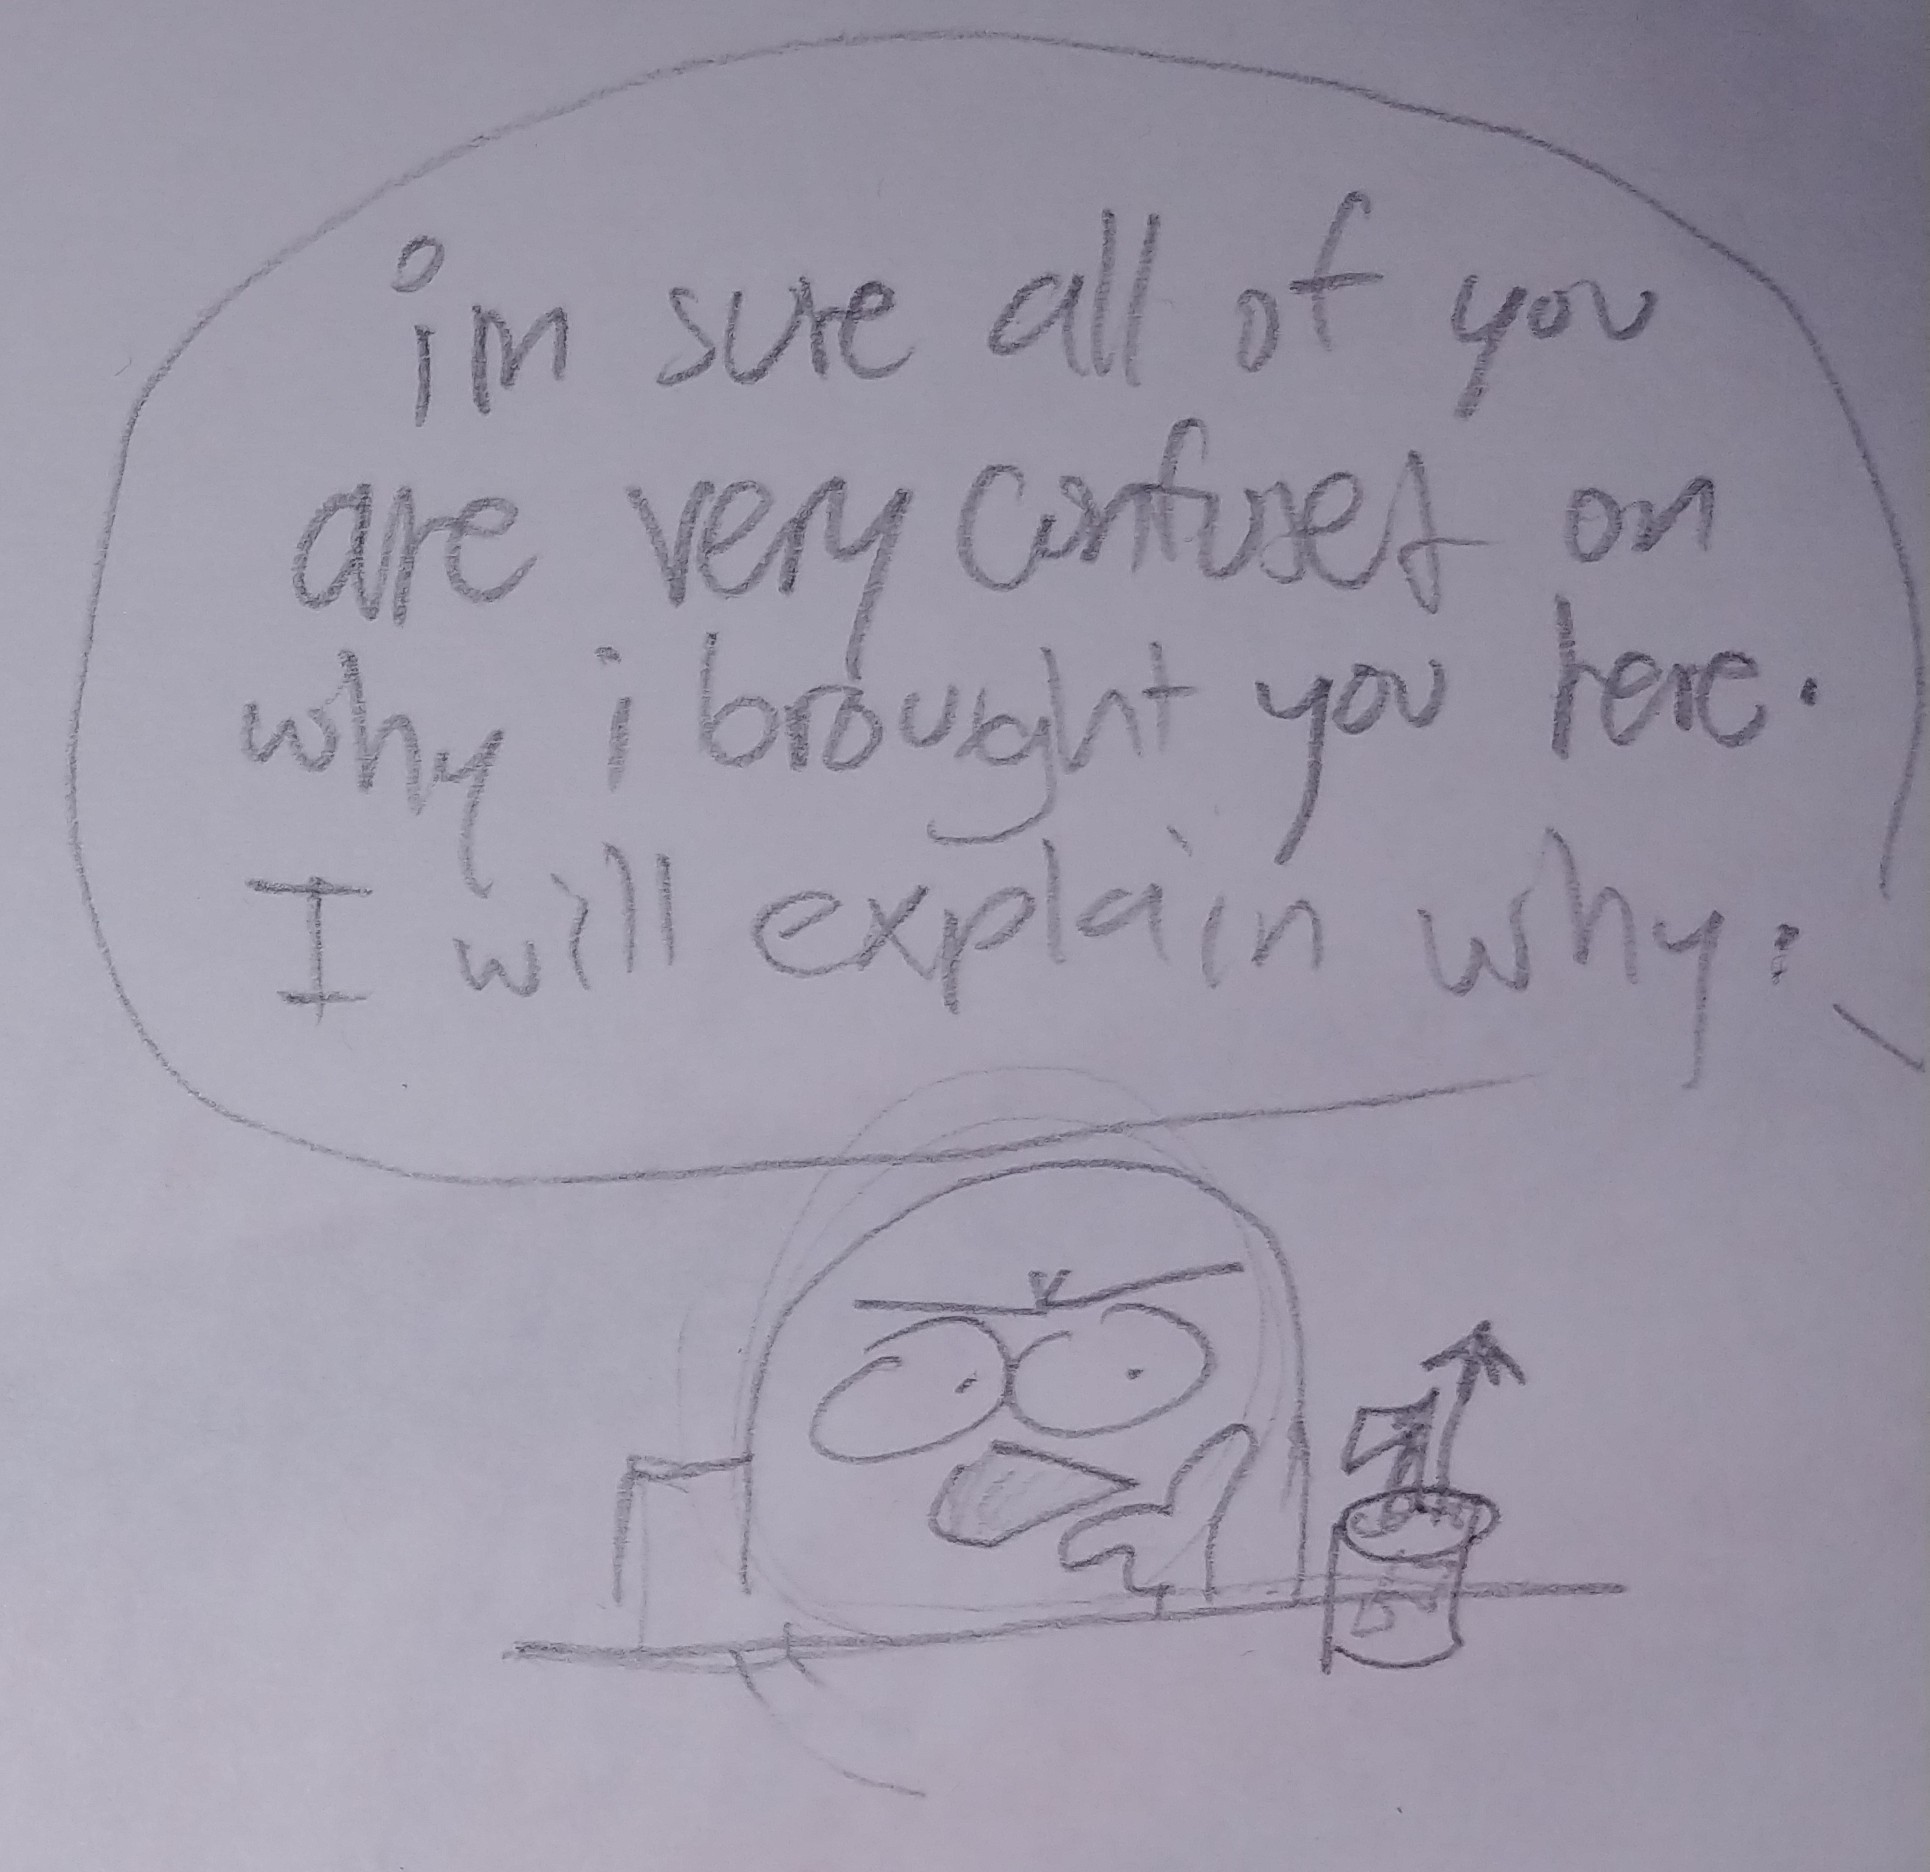 im sure all of you
are very confused on
why i brought you here.
I will explain why.